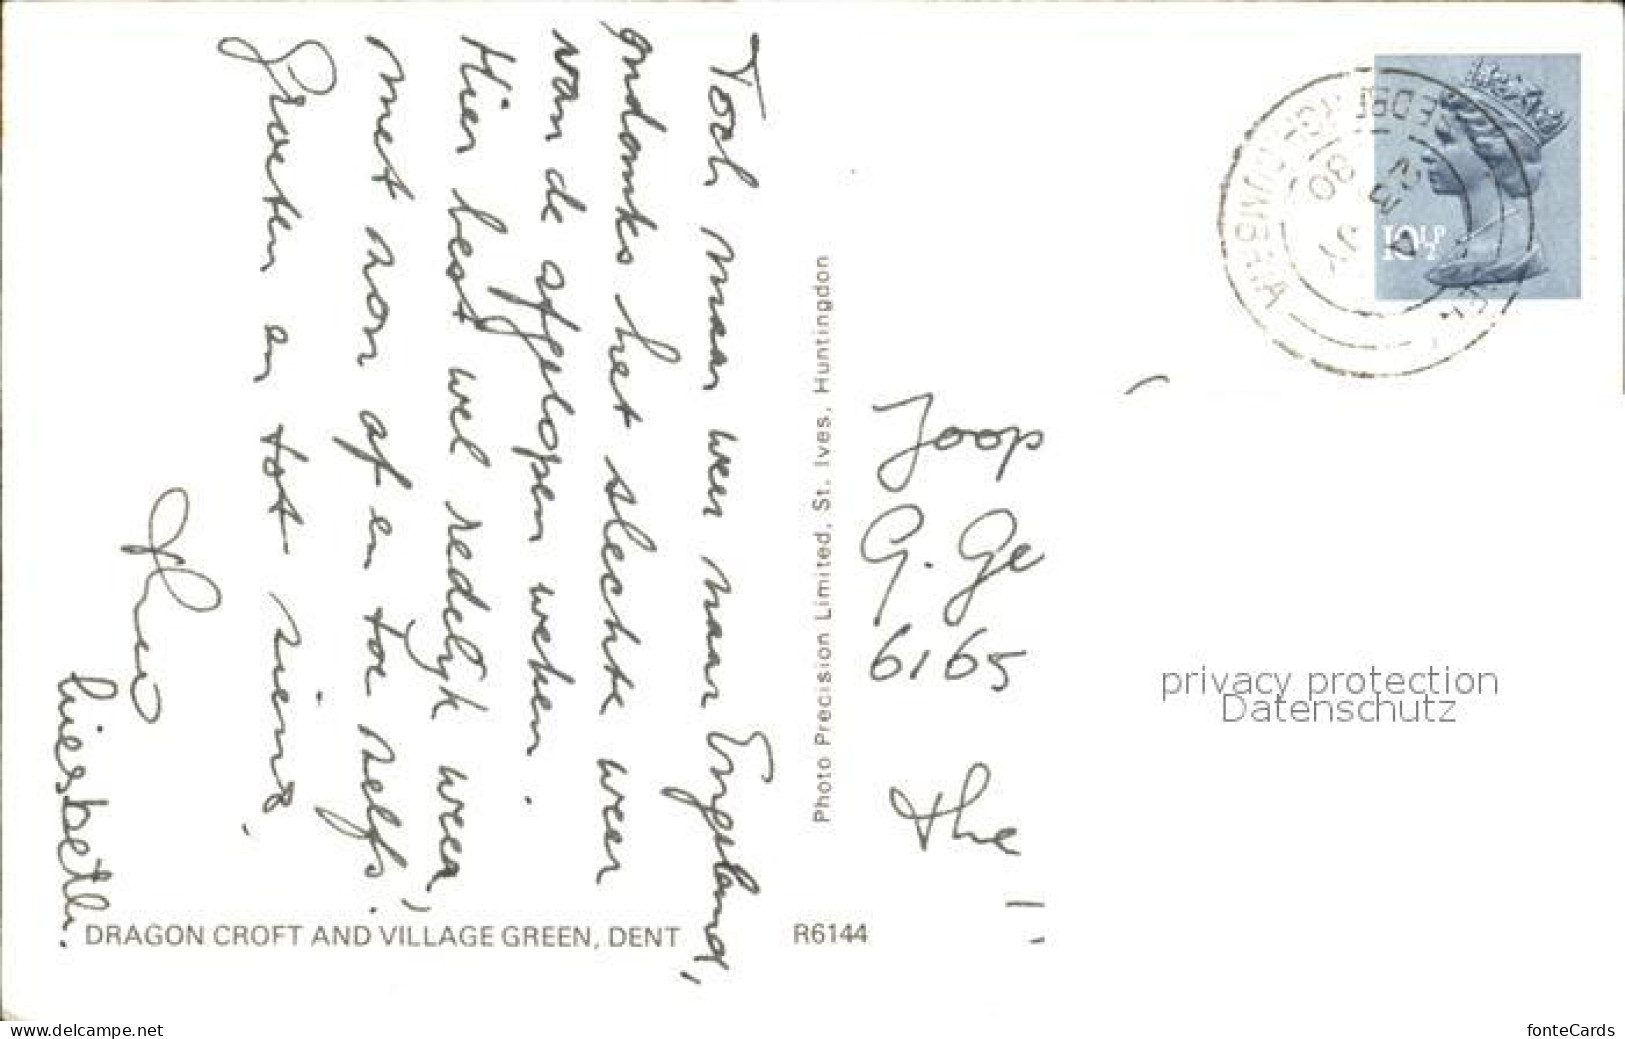 Toch maar weer naar Engeland,
ondanks het slechte weer
van de afgelopen weken.
Hier best wel redelijk weer,
met zon af en toe zelfs.
Groeten en tot ziens,
Liesbeth.
DRAGON CROFT AND VILLAGE GREEN, DENT
R6144
Photo Precision Limited, St. Ives, Huntingdon
10½P
Joop
G. Ge
6165
the
privacy protection
Datenschutz
www.delcampe.net
fonteCards